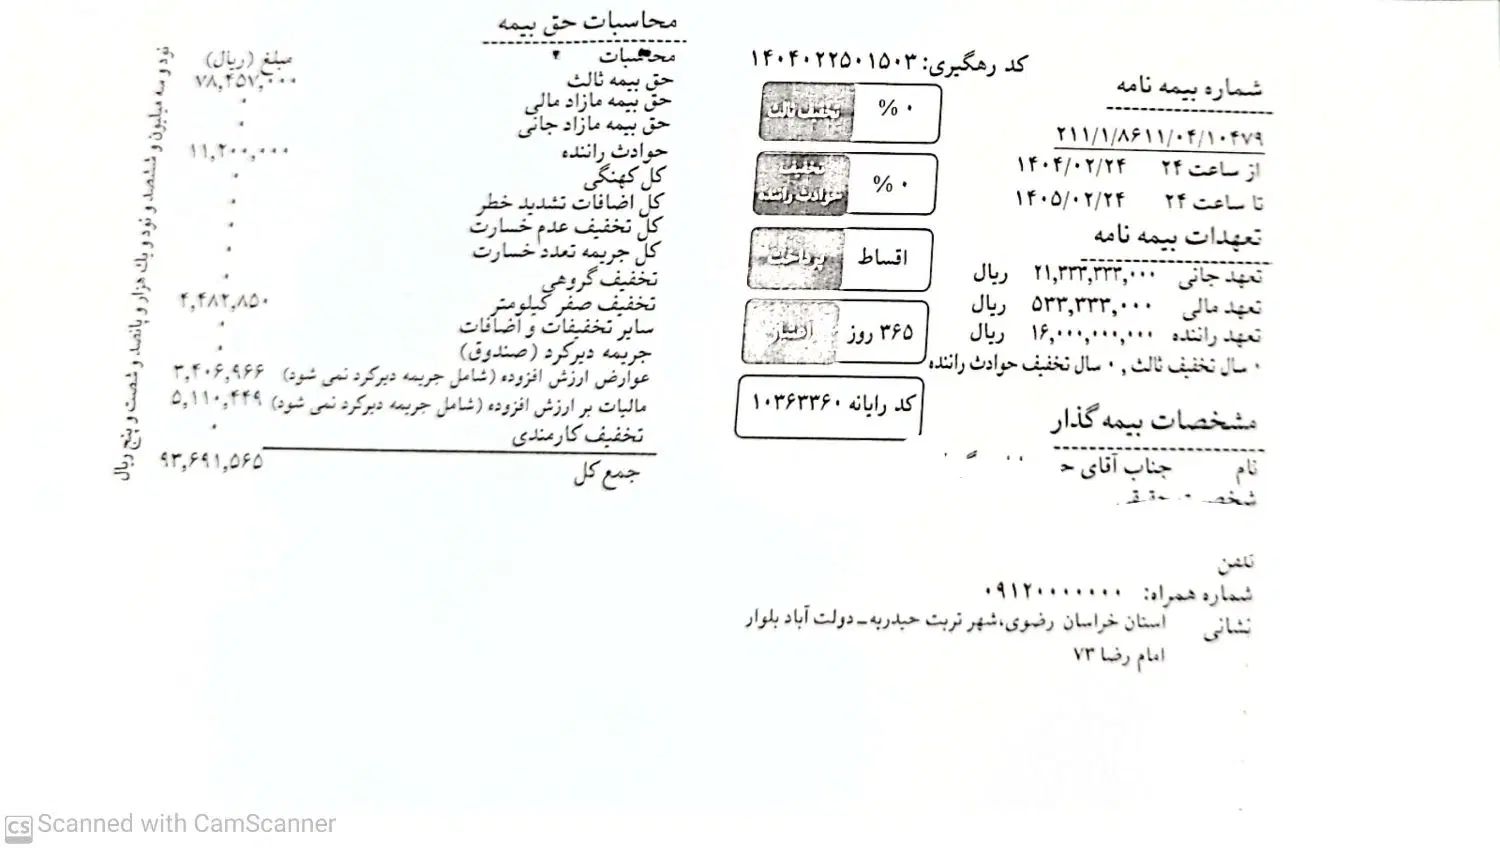 شماره بیمه نامه
۲۱۱/۱/۸۶۱۱/۰۴/۱۰۴۷۹
از ساعت ۲۴ ۱۴۰۴/۰۲/۲۴
تا ساعت ۲۴ ۱۴۰۵/۰۲/۲۴
تعهدات بیمه نامه
تعهد جانی ۲۱,۳۳۳,۳۳۳,۰۰۰ ریال
تعهد مالی ۵۳۳,۳۳۳,۰۰۰ ریال
تعهد راننده ۱۶,۰۰۰,۰۰۰,۰۰۰ ریال
۰ سال تخفیف ثالث , ۰ سال تخفیف حوادث راننده
مشخصات بیمه گذار
نام جناب آقای
تلفن
شماره همراه: ۰۹۱۲۰۰۰۰۰۰۰
نشانی استان خراسان رضوی،شهر تربت حیدریه_ دولت آباد بلوار
امام رضا ۷۳
کد رهگیری: ۱۴۰۴۰۲۲۵۰۱۵۰۳
% ۰ تخفیف ثالث
% ۰ تخفیف
حوادث راننده
اقساط پرداخت
۳۶۵ روز اعتبار
کد رایانه ۱۰۳۶۳۳۶۰
محاسبات حق بیمه
محاسبات مبلغ (ریال)
حق بیمه ثالث ۷۸,۴۵۷,۰۰۰
حق بیمه مازاد مالی ۰
حق بیمه مازاد جانی ۰
حوادث راننده ۱۱,۲۰۰,۰۰۰
کل کهنگی ۰
کل اضافات تشدید خطر ۰
کل تخفیف عدم خسارت ۰
کل جریمه تعدد خسارت ۰
تخفیف گروهی ۰
تخفیف صفر کیلومتر ۴,۴۸۲,۸۵۰
سایر تخفیفات و اضافات ۰
جریمه دیرکرد (صندوق) ۰
عوارض ارزش افزوده (شامل جریمه دیرکرد نمی شود) ۳,۴۰۶,۹۶۶
مالیات بر ارزش افزوده (شامل جریمه دیرکرد نمی شود) ۵,۱۱۰,۴۴۹
تخفیف کارمندی ۰
جمع کل ۹۳,۶۹۱,۵۶۵
نود و سه میلیون و ششصد و نود و یک هزار و پانصد و شصت و پنج ریال
CS Scanned with CamScanner